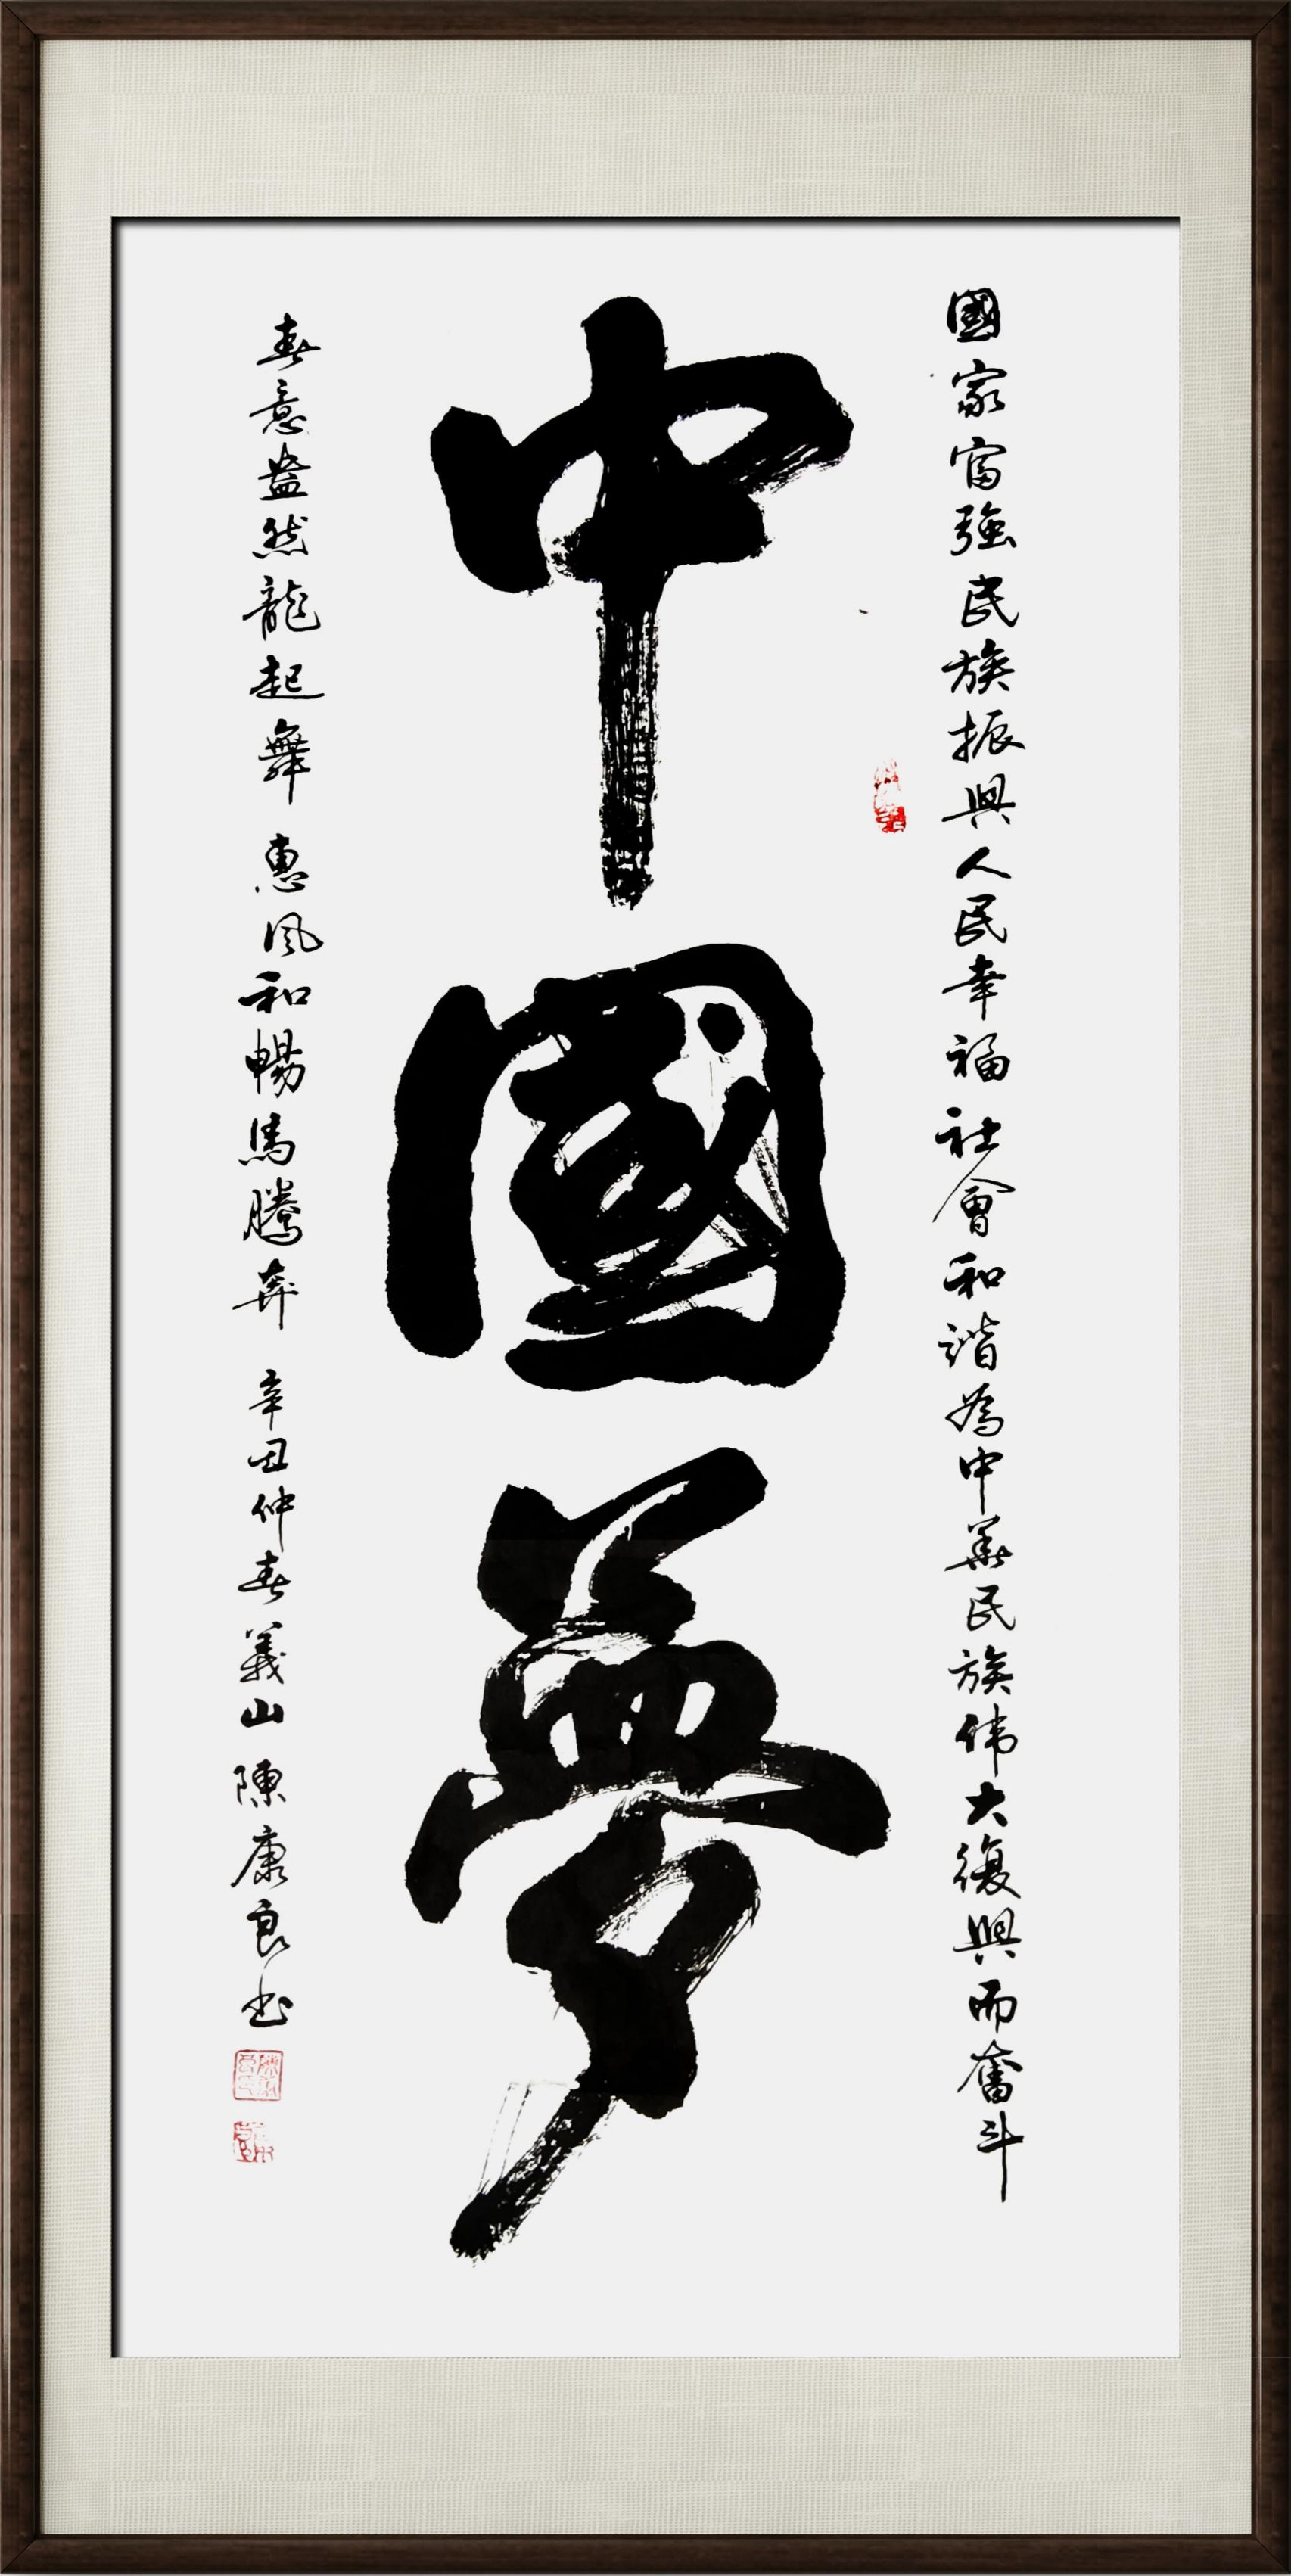 國家富強民族振興人民幸福社會和谐為中華民族伟大復興而奮斗
中國夢
春意盎然龍起舞 惠風和暢馬騰奔 辛丑仲春義山陳康良书